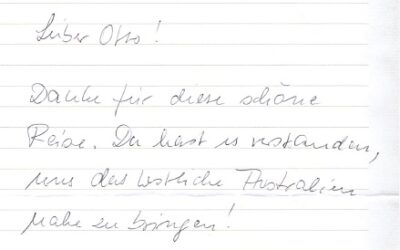 Lieber Otto!
Danke für diese schöne
Reise. Du hast es verstanden,
uns das westliche Australien
nahe zu bringen!